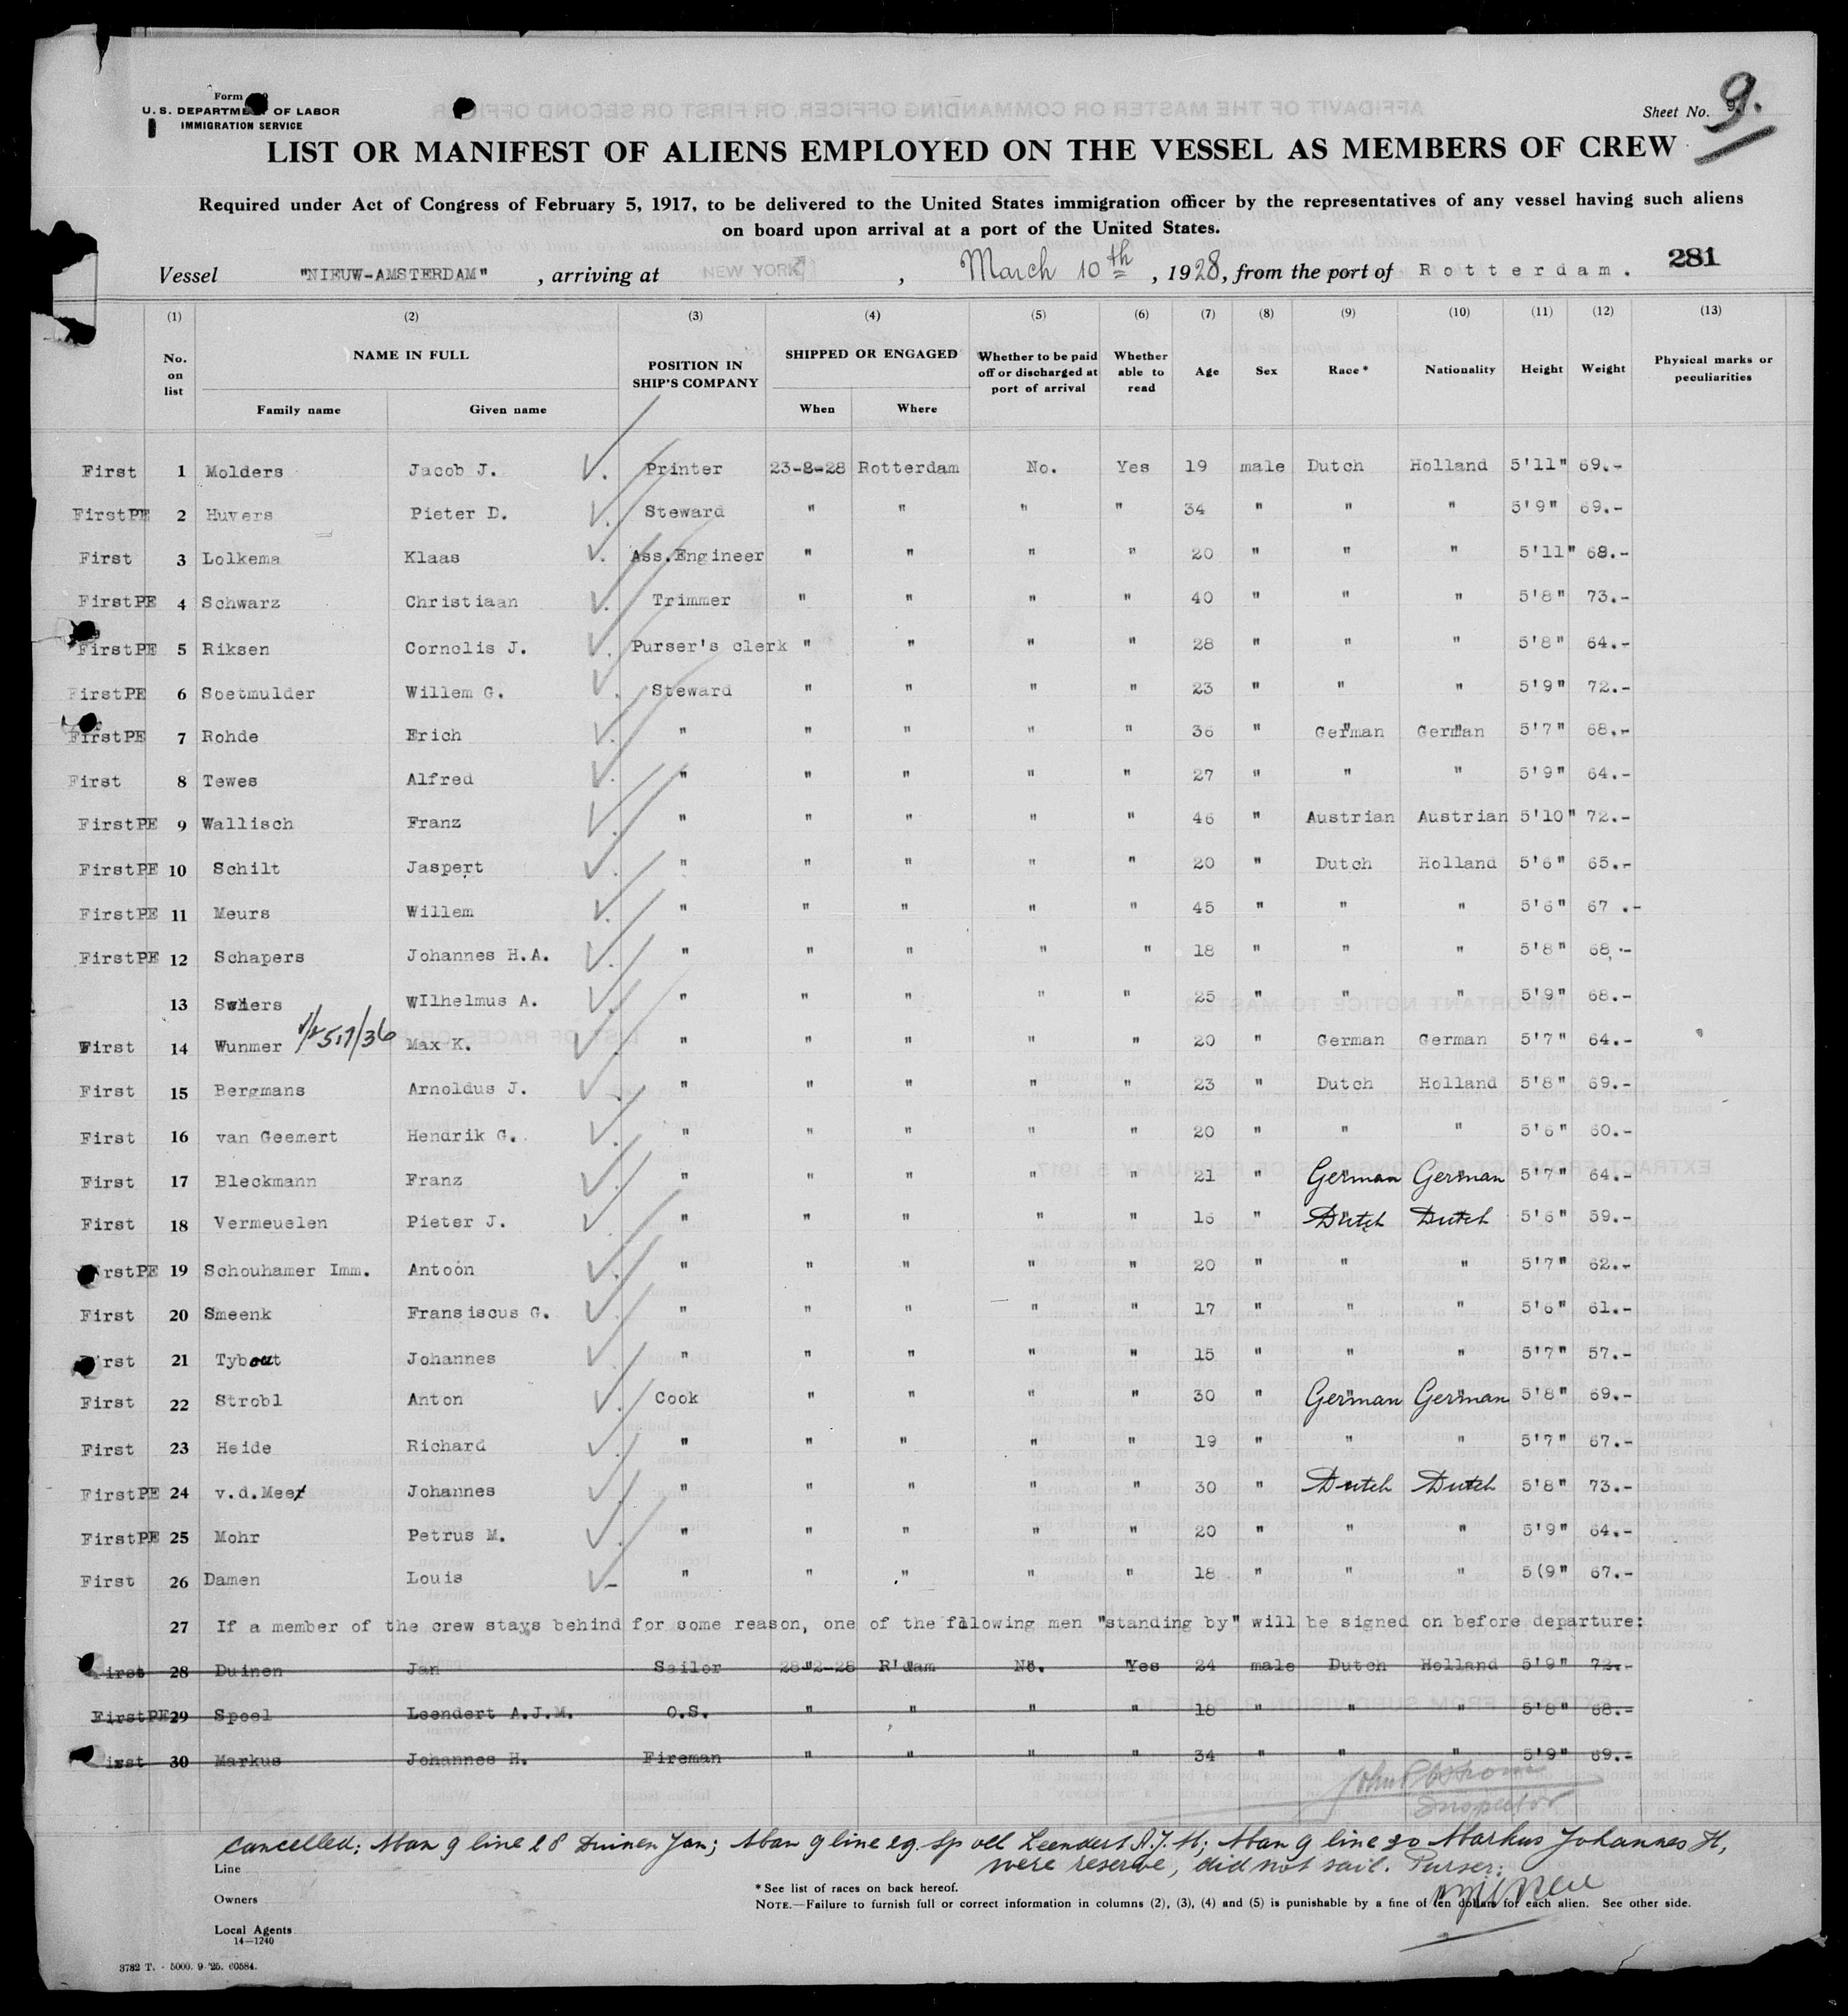 Form
U. S. DEPARTMENT OF LABOR
IMMIGRATION SERVICE
Sheet No. 9.
LIST OR MANIFEST OF ALIENS EMPLOYED ON THE VESSEL AS MEMBERS OF CREW
Required under Act of Congress of February 5, 1917, to be delivered to the United States immigration officer by the representatives of any vessel having such aliens
on board upon arrival at a port of the United States.
281
Vessel "NIEUW-AMSTERDAM" , arriving at NEW YORK , March 10th , 1928, from the port of Rotterdam.
(1) (2) (3) (4) (5) (6) (7) (8) (9) (10) (11) (12) (13)
No. on list NAME IN FULL Family name Given name POSITION IN SHIP'S COMPANY SHIPPED OR ENGAGED When Where Whether to be paid off or discharged at port of arrival Whether able to read Age Sex Race* Nationality Height Weight Physical marks or peculiarities
First 1 Molders Jacob J. Printer 23-2-28 Rotterdam No. Yes 19 male Dutch Holland 5'11" 69.-
FirstPE 2 Huvers Pieter D. Steward " " " " 34 " " " 5'9" 69.-
First 3 Lolkema Klaas Ass.Engineer " " " " 20 " " " 5'11" 68.-
FirstPE 4 Schwarz Christiaan Trimmer " " " " 40 " " " 5'8" 73.-
FirstPE 5 Riksen Cornolis J. Purser's clerk " " " " 28 " " " 5'8" 64.-
FirstPE 6 Soetmulder Willem G. Steward " " " " 23 " " " 5'9" 72.-
FirstPE 7 Rohde Erich " " " " " 36 " German German 5'7" 68.-
First 8 Tewes Alfred " " " " " 27 " " " 5'9" 64.-
FirstPE 9 Wallisch Franz " " " " " 46 " Austrian Austrian 5'10" 72.-
FirstPE 10 Schilt Jaspert " " " " " 20 " Dutch Holland 5'6" 65.-
FirstPE 11 Meurs Willem " " " " " 45 " " " 5'6" 67 .-
FirstPE 12 Schapers Johannes H.A. " " " " " 18 " " " 5'8" 68.-
13 wIlhelmus A. " " " " " 25 " " " 5'9" 68.-
First 14 Wunmer Max K. " " " " " 20 " German German 5'7" 64.-
First 15 Bergmans Arnoldus J. " " " " " 23 " Dutch Holland 5'8" 69.-
First 16 van Geemert Hendrik G. " " " " " 20 " " " 5'6" 60.-
First 17 Bleckmann Franz " " " " " 21 " German German 5'7" 64.-
First 18 Vermeuelen Pieter J. " " " " " 16 " Dutch Dutch 5'6" 59.-
FirstPE 19 Schouhamer Imm. Antoon " " " " " 20 " " " 5'7" 62.-
First 20 Smeenk Fransiscus G. " " " " " 17 " " " 5'6" 61.-
First 21 Tybout Johannes " " " " " 15 " " " 5'7" 57.-
First 22 Strobl Anton Cook " " " " 30 " German German 5'8" 69.-
First 23 Heide Richard " " " " " 19 " " " 5'7" 67.-
FirstPE 24 v.d.Meer Johannes " " " " " 30 " Dutch Dutch 5'8" 73.-
FirstPE 25 Mohr Petrus M. " " " " " 20 " " " 5'9" 64.-
First 26 Damen Louis " " " " " 18 " " " 5(9" 67.-
27 If a member of the crew stays behind for some reason, one of the fllowing men "standing by" will be signed on before departure:
First 28 Duinen Jan Sailor 28-2-28 R'dam No. Yes 24 male Dutch Holland 5'9" 72.-
FirstPE 29 Spoel Leendert A.J.M. O.S. " " " " 18 " " " 5'8" 68.-
First 30 Markus Johannes H. Fireman " " " " 34 " " " 5'9" 69.-
Inspector
Cancelled: Man 9 line 28 Duinen Jan; Man 9 line 29. Spoel Leendert A.J.M; Man 9 line 30 Markus Johannes H,
were reserve, did not sail. Purser:
Line
Owners
Local Agents
14—1240
* See list of races on back hereof.
NOTE.—Failure to furnish full or correct information in columns (2), (3), (4) and (5) is punishable by a fine of ten dollars for each alien. See other side.
3782 T. - 5000. 9-'25. 60584.